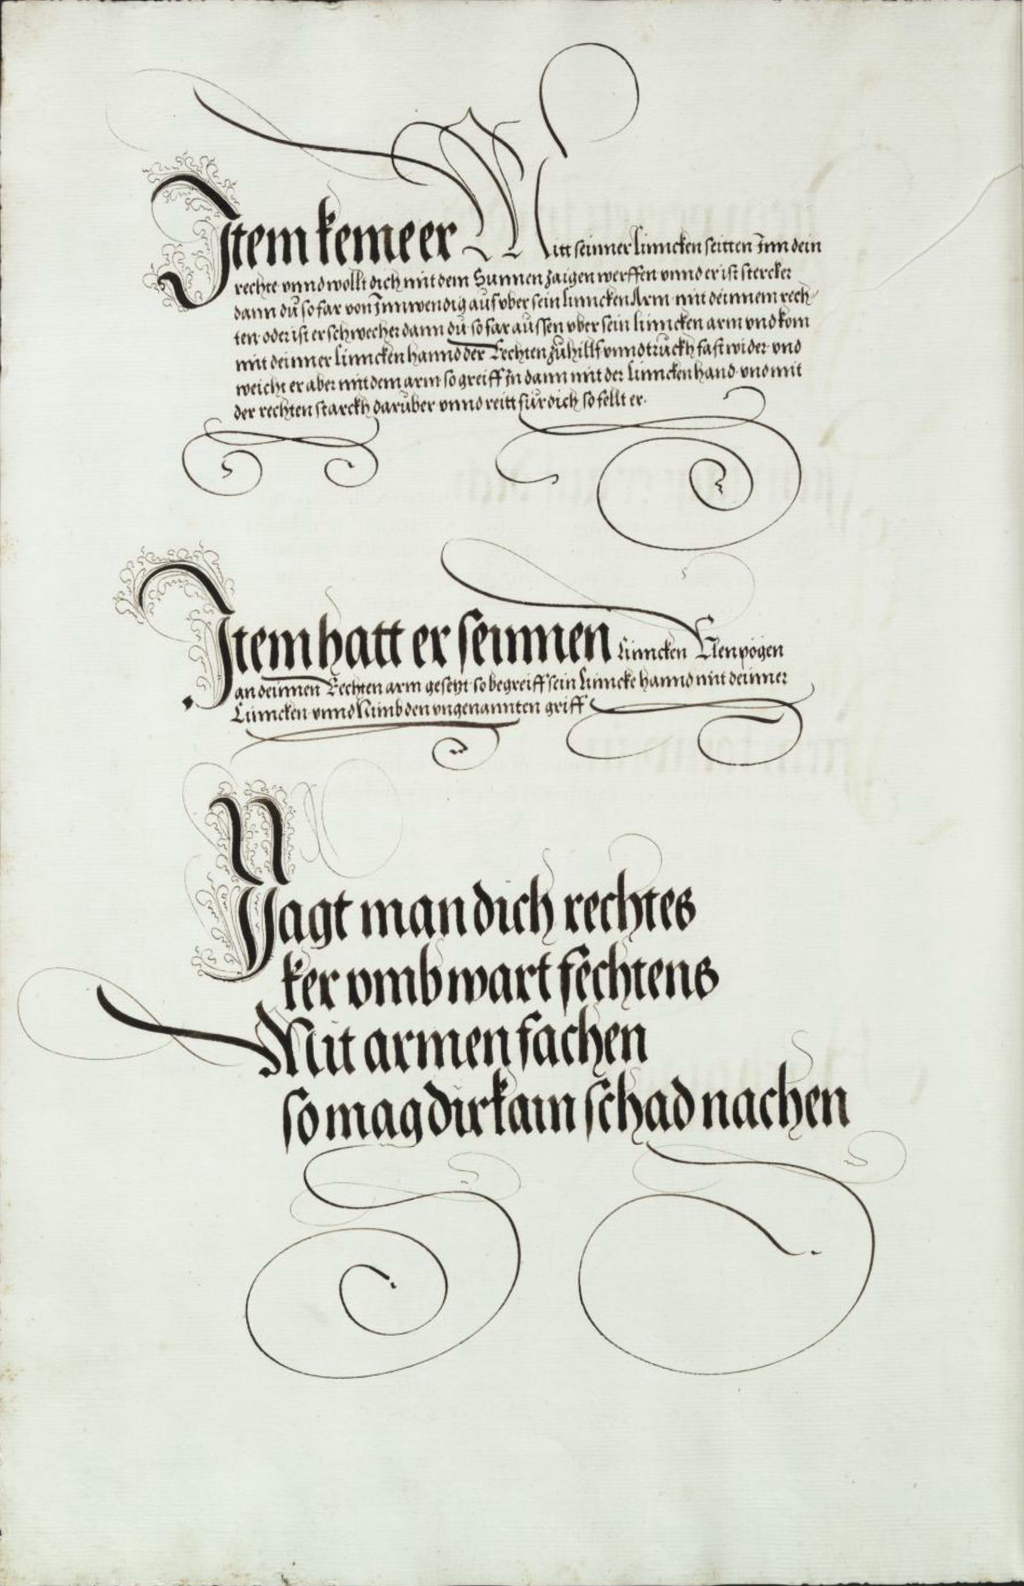 Item kem eer Mitt seinner linncken seitten Inn dein
rechte vnnd wollt dich mit dem Sunnen zaigen werffen vnnd er ist stercker
dann dü so far von Innwendig aus vber sein linncken Arm mit deinnem rech/
ten oder ist er schwecher dann dü so far aussen vber sein linncken arm vnd kom
mit deinner linncken hannd der Rechten zü hillf vnnd trückh fast wider vnd
weicht er aber mit dem arm so greiff In dann mit der linncken hand vnd mit
der rechten starckh darüber vnnd reitt für dich so fellt er.
Item hatt er seinnen Linncken Elenpogen
an deinnen Rechten arm gesetzt so begreiff sein linncke hannd mit deinner
Linncken vnnd Nimb den vngenannten griff
Yagt man dich rechtes
ker vmb wart fechtens
Mit armen fachen
so mag dir kain schad nachen